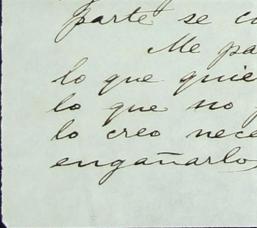 parte se c
Me pa
lo que quie
lo que no
lo creo nece
engañarlo,